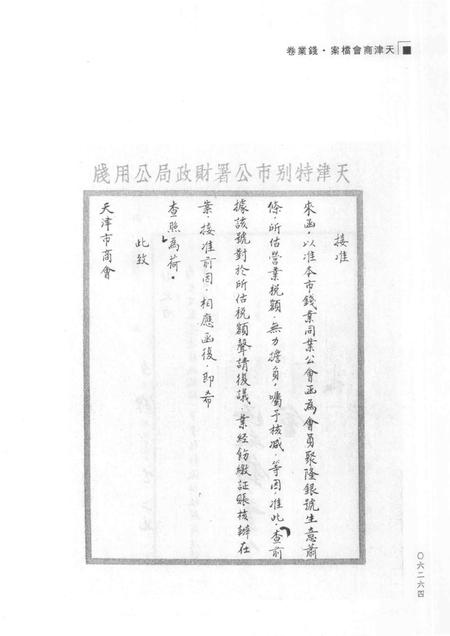 天津商會檔案·錢業卷
天津特別市公署財政局公用牋
接准
來函，以准本市錢業同業公會函為會員聚隆銀號生意蕭
條，所估營業稅額，無力擔負，囑予核減，等因，准此，查前
據該號對於所估稅額聲請復議，業經飭繳証賬核辦在
案，接准前因，相應函復，即希
查照為荷。
此致
天津市商會
〇六二六四